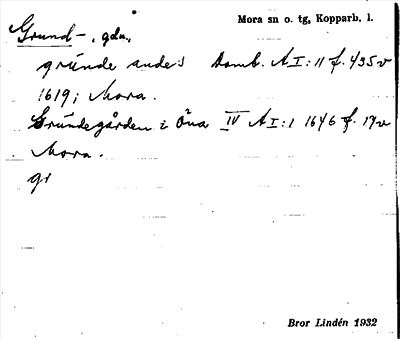 Grund-, gdn., Mora sn o. tg, Kopparb. l.
grunde andes Domb. A I: 11 f. 435v
1619; Mora.
Grundegården i Öna IV A I: 1 1646 f. 17v
Mora.
gr
Bror Lindén 1932